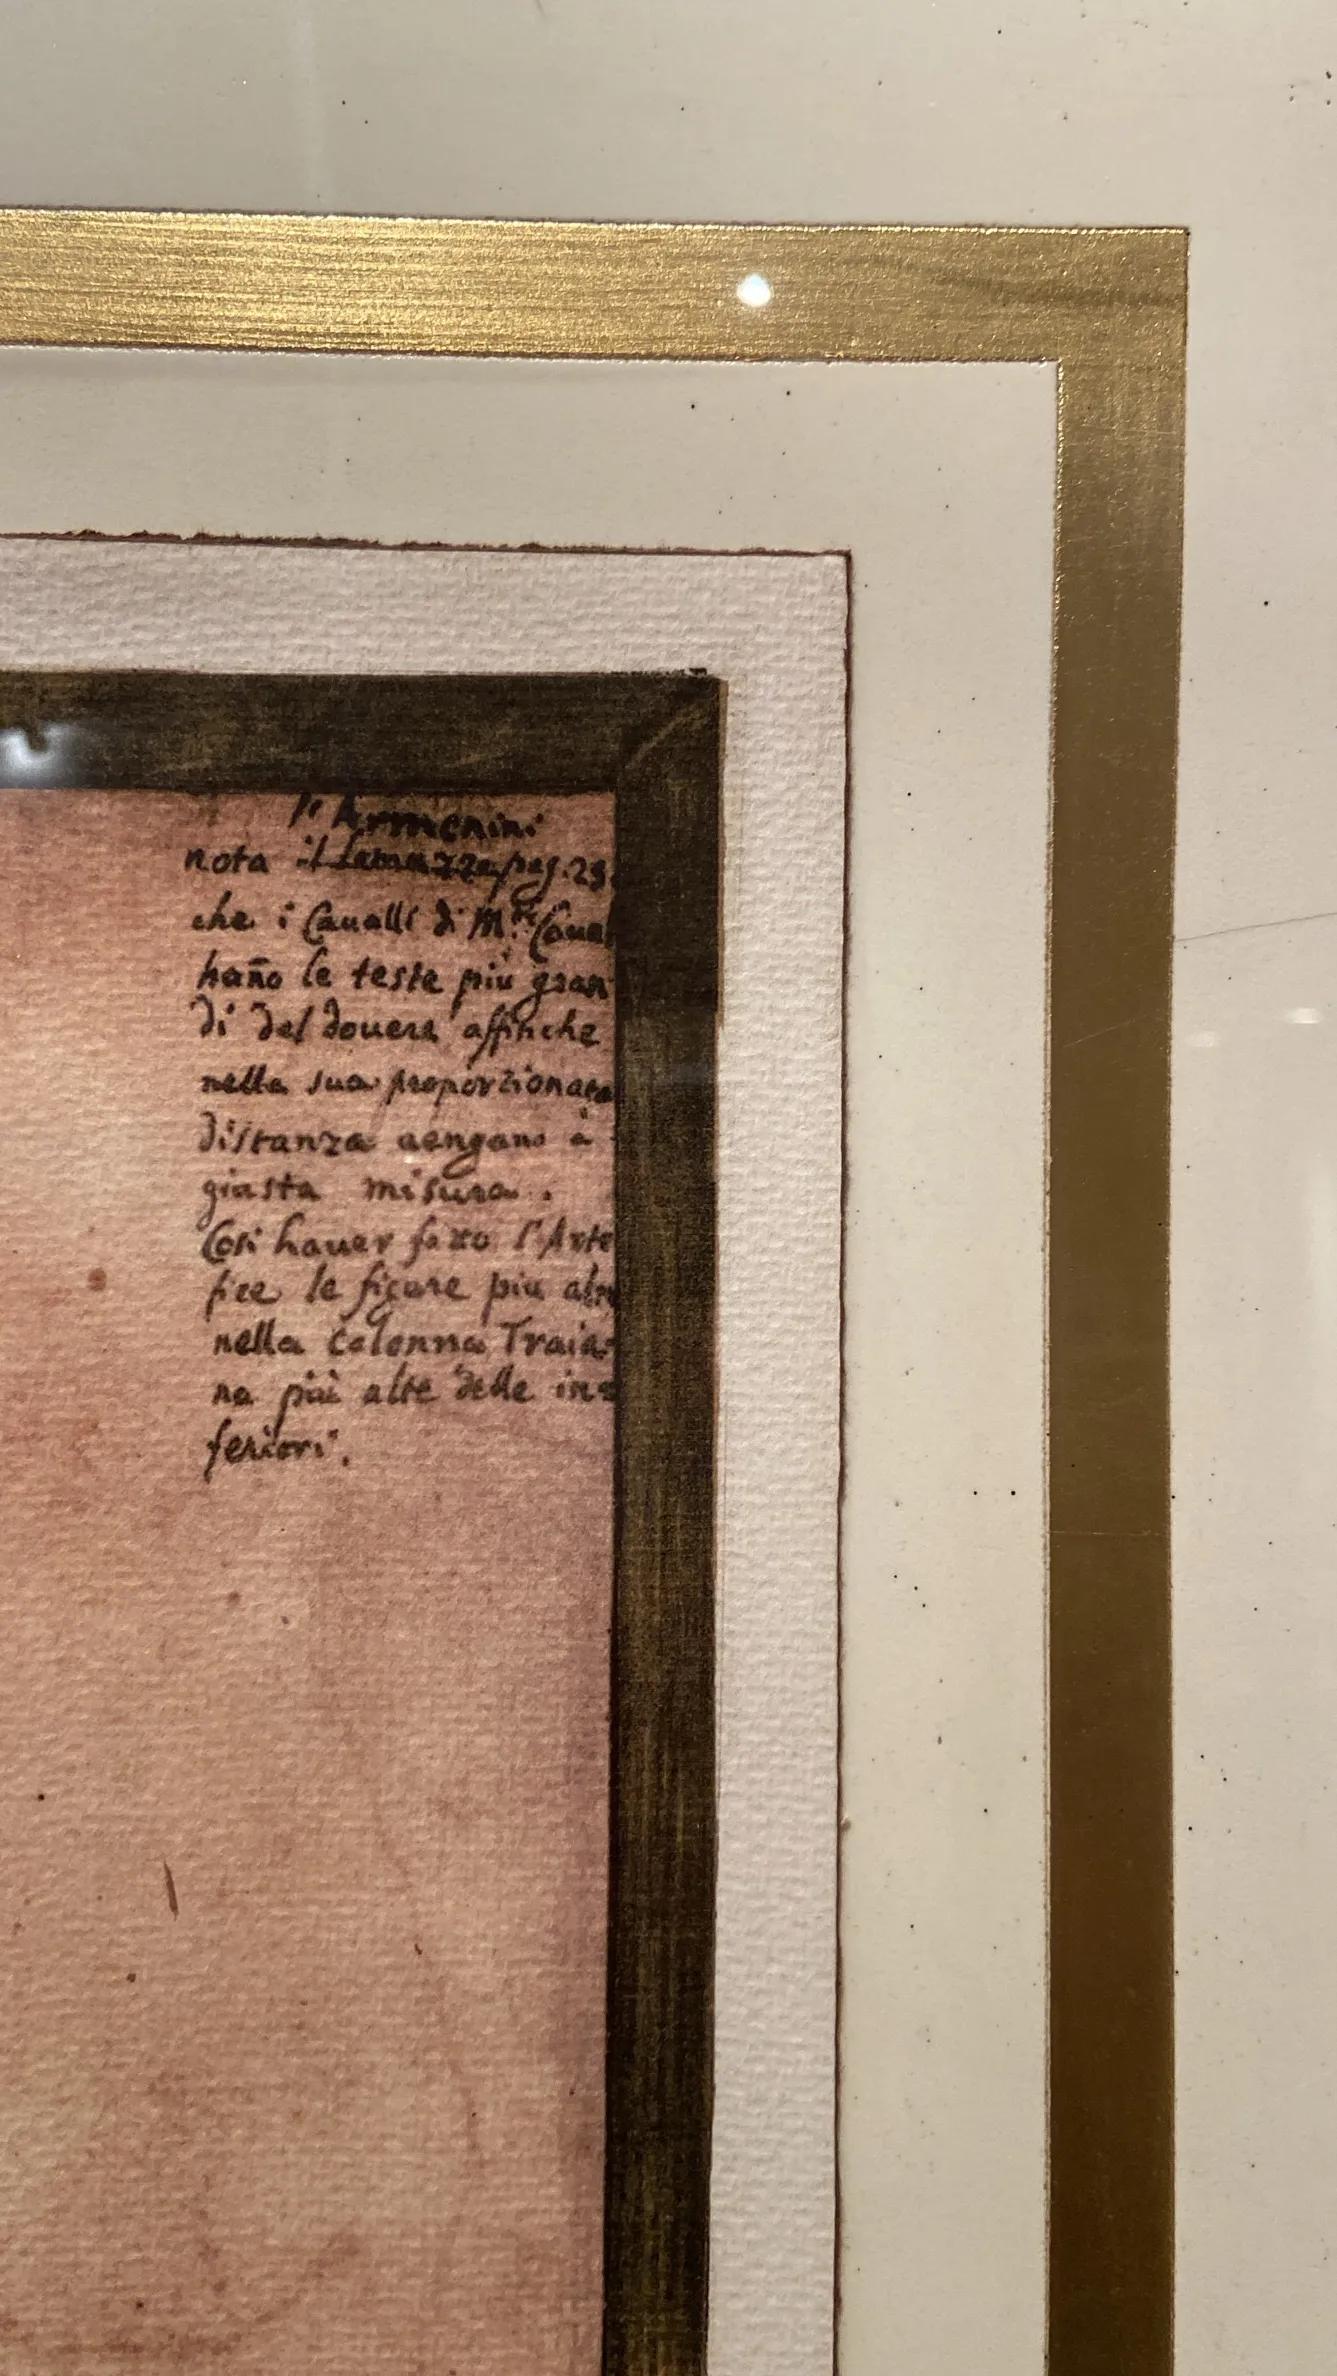 l'Armenini
nota il Lomazzo pag. 29
che i Cauалli di M.te Caual
hano le teste più gran
di del douere affinche
nella sua proporzionata
distanza uengano à
giusta misura.
Cosi hauer fatto l'Arte
fice le figure piu alte
nella Colonna Traia
na più alte delle in
feriori.